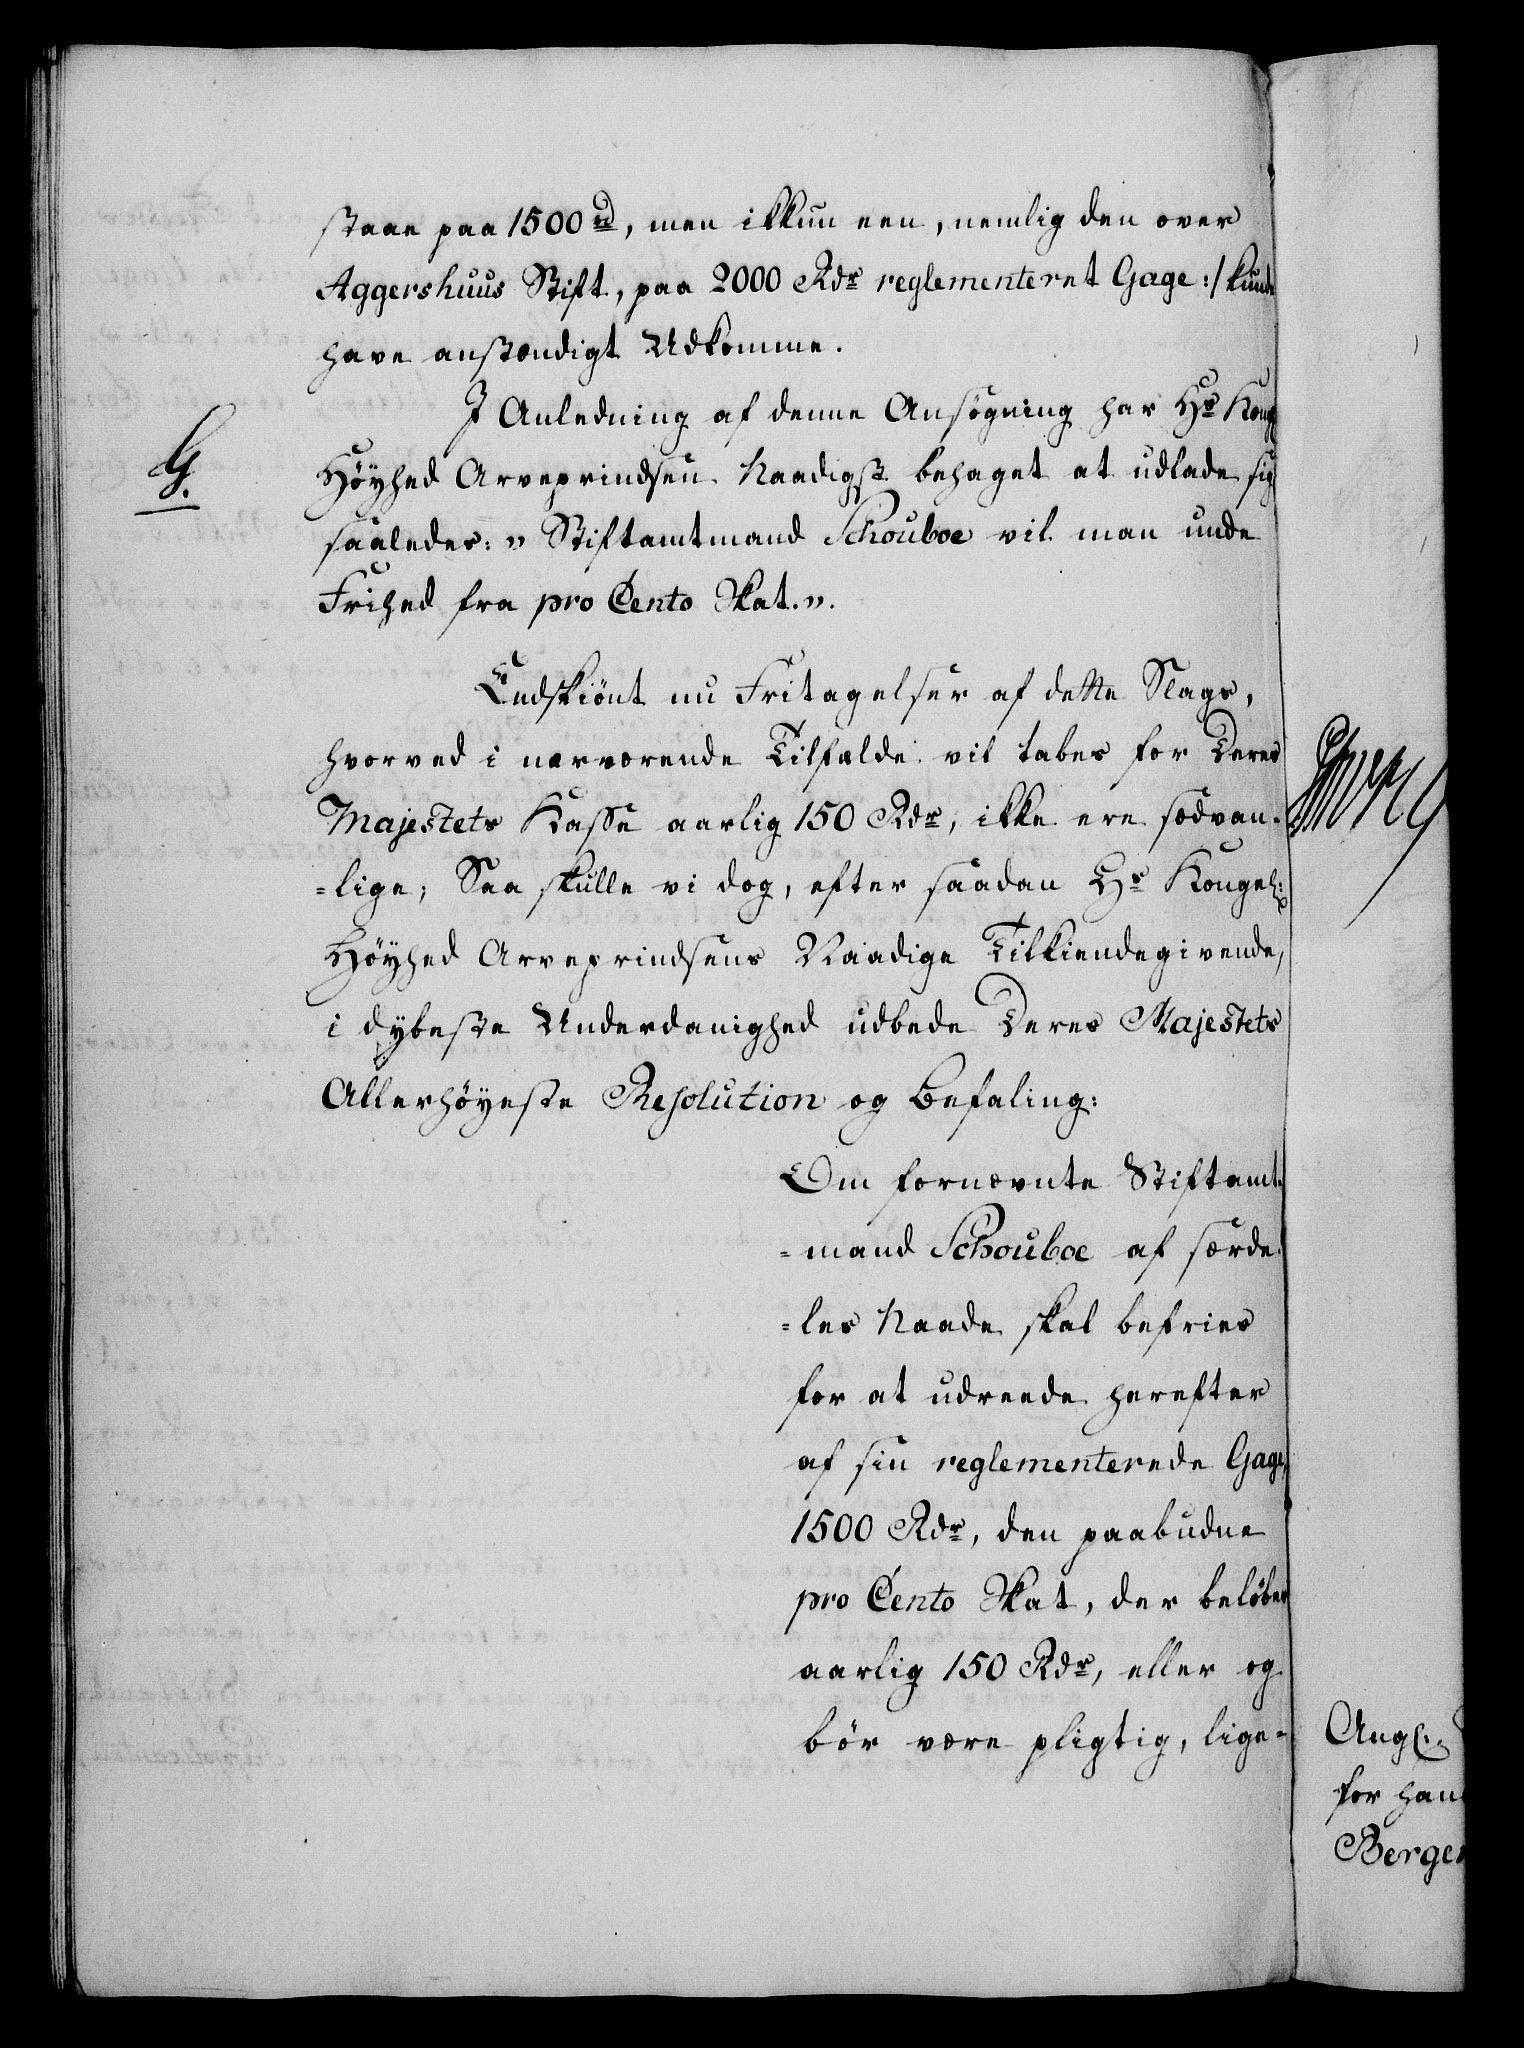 staae paa 1500 rd, men ikkun een, nemlig den over
Aggershuus Stift, paa 2000 Rdr reglementeret Gage :/ kunde
have anstændigt Udkomme.
I Anledning af denne Ansøgning har Hs Kongl
G.
Høyhed Arveprindsen Naadigst behaget at udlade sig
saaledes: " Stiftamtmand Schouboe vil man unde
Frihed fra pro Cento Skat.".
Endskiønt nu Fritagelser af dette Slags,
hvorved i nærværende Tilfælde vil tabes for Deres
Majestets Kasse aarlig 150 Rdr, ikke ere sædvan-
=lige; Saa skulle vi dog, efter saadan Hs Kongel:
Høyhed Arveprindsens Naadige Tilkiendegivende,
i dybeste Underdanighed udbede Deres Majestets
Allerhøyeste Resolution og Befaling:
Om fornævnte Stiftamt-
=mand Schouboe af særde-
=les Naade skal befries
for at udreede herefter
af sin reglementerede Gage,
1500 Rdr, den paabudne
pro Cento Skat, der beløber
aarlig 150 Rdr, eller og
bør være pligtig, lige=
Angl:
for han
Bergen